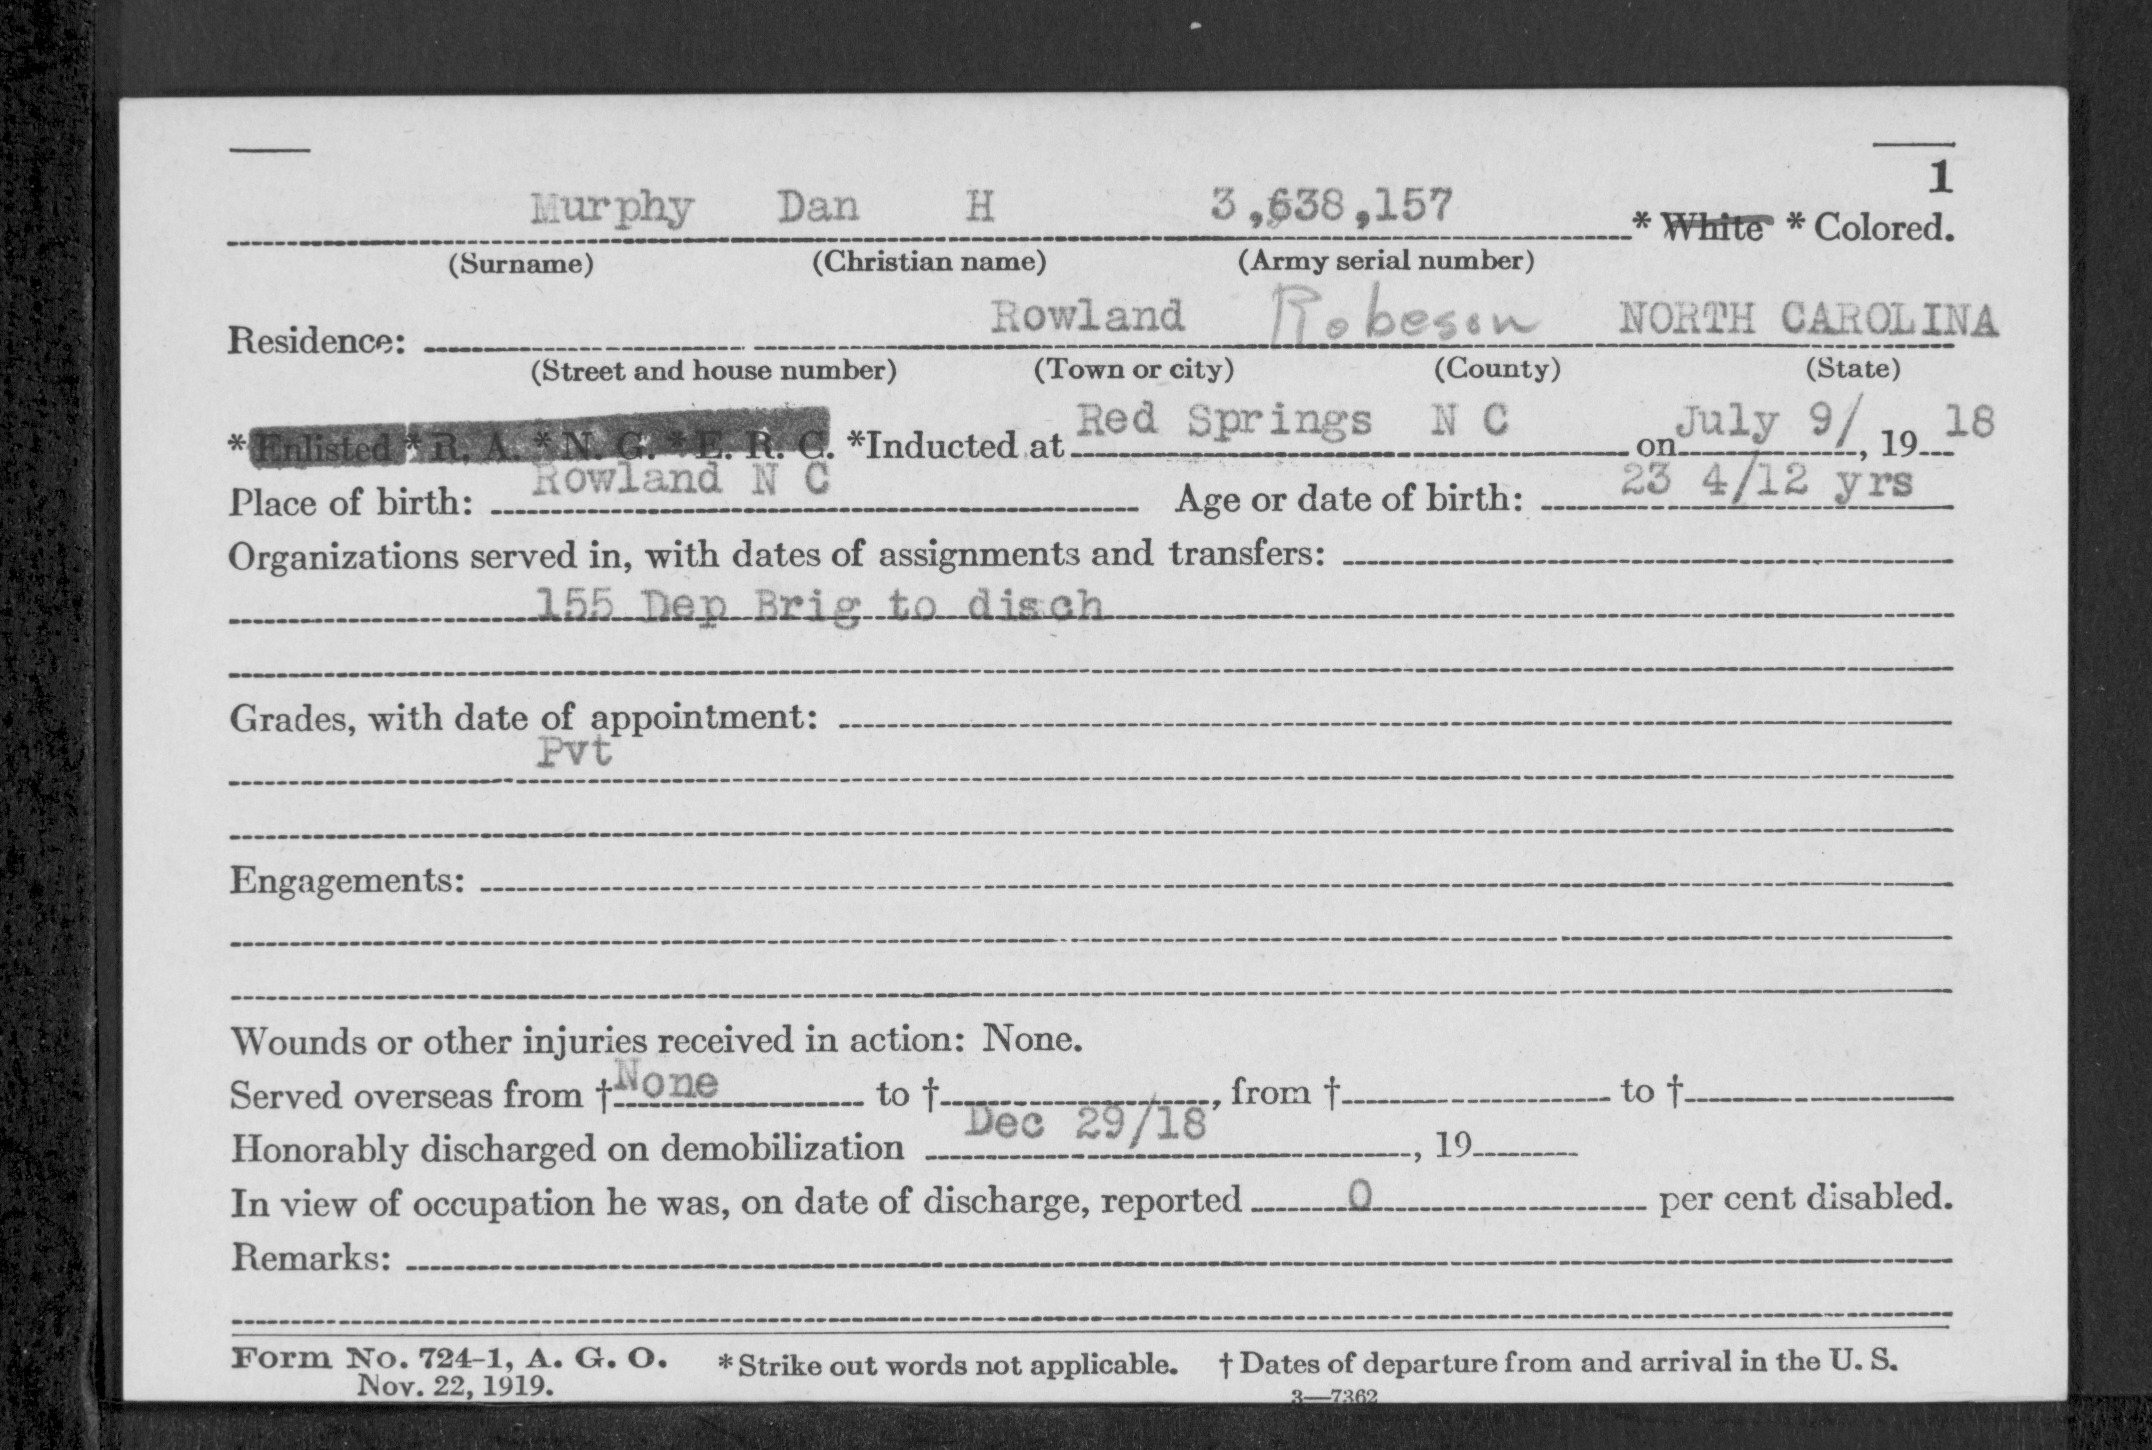 1
Murphy Dan H 3,638,157 * White * Colored.
(Surname) (Christian name) (Army serial number)
Residence: Rowland Robeson NORTH CAROLINA
(Street and house number) (Town or city) (County) (State)
* Enlisted * R. A. * N. G. * E. R. C. *Inducted at Red Springs N C on July 9/, 19 18
Place of birth: Rowland N C Age or date of birth: 23 4/12 yrs
Organizations served in, with dates of assignments and transfers:
155 Dep Brig to disch
Grades, with date of appointment:
Pvt
Engagements:
Wounds or other injuries received in action: None.
Served overseas from † None to †, from † to †
Honorably discharged on demobilization Dec 29/18, 19
In view of occupation he was, on date of discharge, reported 0 per cent disabled.
Remarks:
Form No. 724-1, A. G. O. * Strike out words not applicable. † Dates of departure from and arrival in the U. S.
Nov. 22, 1919. 3—7362